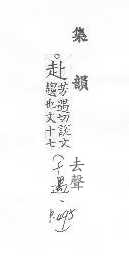 集韻 去聲
。赴 芳遇切說文
趨也文十七
P.495